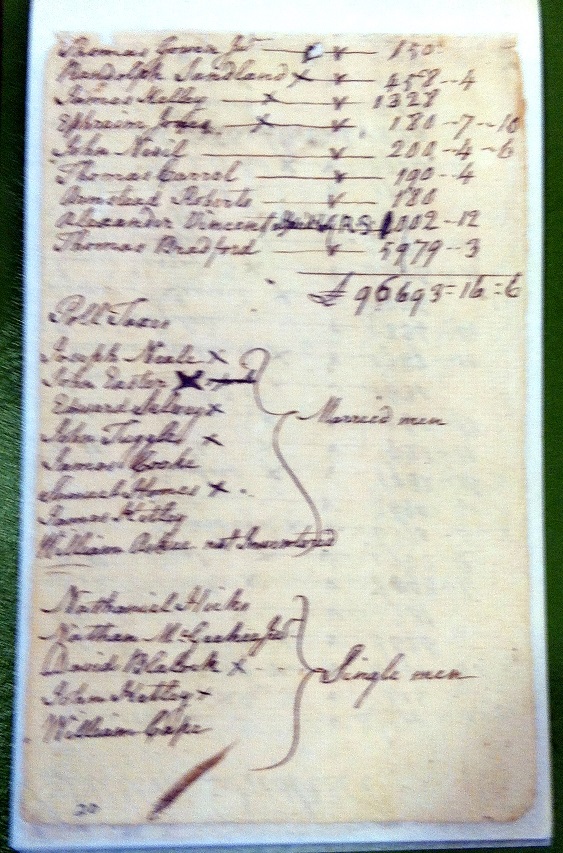 Thomas Gower Jr — v — 150
Randolph Sandland x — v — 458--4
James Kelley — x — v — 1328
Ephraim Jones x — v — 180-7--10
John Nevil — v — 200-4-6
Thomas Carrol — v — 190-4
Armstead Roberts — v — 180
Alexander Vincent 1002-12
Thomas Bradford — v — 5979-3
£ 96693=16=6
Poll Taxes
Joseph Neale x
John Easter x
Edward x
John Tuggle x
James Cooke
Samuel Homes x
James Hetley
William not Inventored
Married men
Nathaniel Hicks
Nathan Jr
David Blalock x
John Hetley x
William Cape
Single men
20